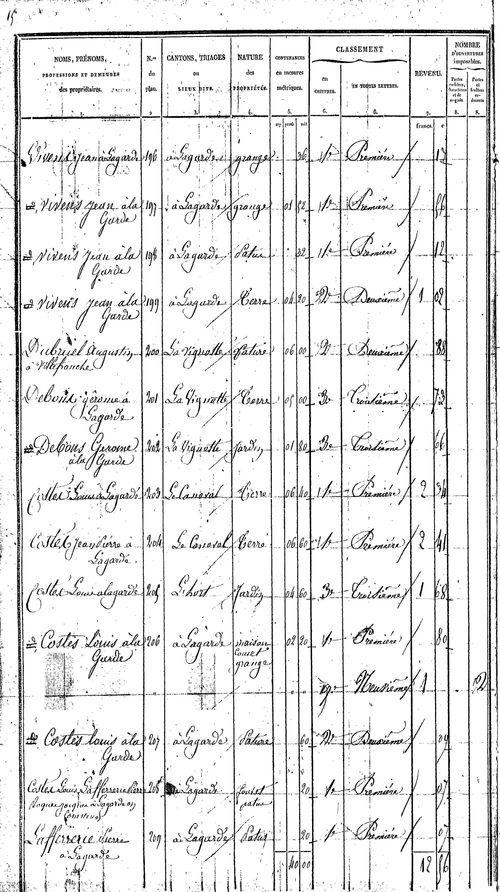 15
NOMS, PRÉNOMS, PROFESSIONS ET DEMEURES des propriétaires. N.os du plan. CANTONS, TRIAGES ou LIEUX DITS. NATURE des PROPRIÉTÉS. CONTENANCES en mesures métriques. CLASSEMENT en CHIFFRES. EN TOUTES LETTRES. REVENU. NOMBRE D'OUVERTURES imposables.
francs. c.
Vivens jean à Lagarde 196 à Lagarde grange 36 1re Première
Vivens jean à la Garde 197 à Lagarde grange 01 52 1re Première 86
Vivens jean à la Garde 198 à Lagarde Patus 32 1re Première 12
Vivens jean à la Garde 199 à Lagarde Terre 04 20 2e Deuxième 1 02
Dubruel Augustin à Villefranche 200 La Vignotte Pature 06 00 2e Deuxième 88
Debons gérome à Lagarde 201 La Vignotte Terre 05 00 3e Troisième 73
Debons Gerome à la Garde 202 La Vignotte jardin 01 80 3e Troisième 66
Costes Louis à Lagarde 203 Le Caneval Terre 06 40 1re Première 2 34
Costes Jean Pierre à Lagarde 204 Le Caneval Terre 06 60 1re Première 2 41
Costes Louis à lagarde 205 L'hort Jardin 04 60 3e Troisième 1 68
Costes Louis à la Garde 206 à Lagarde maison four et grange 02 20 1re Première 80
9e Neuvième 1 2
Costes louis à la Garde 207 à Lagarde Pature 60 2e Deuxième 09
Costes Louis, Lafferrerie Pierre à Lagarde en commun 208 Lagarde four et patus 20 1re Première 07
Lafferrerie Pierre à Lagarde 209 à Lagarde Patus 20 1re Première 07
40 00 12 86